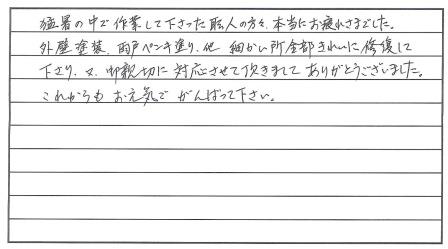 猛暑の中で作業して下さった職人の方々、本当にお疲れさまでした。
外壁塗装、雨戸ペンキ塗り、他 細かい所全部きれいに修復して
下さり、又、御親切に対応させて頂きまして ありがとうございました。
これからも お元気で がんばって下さい。